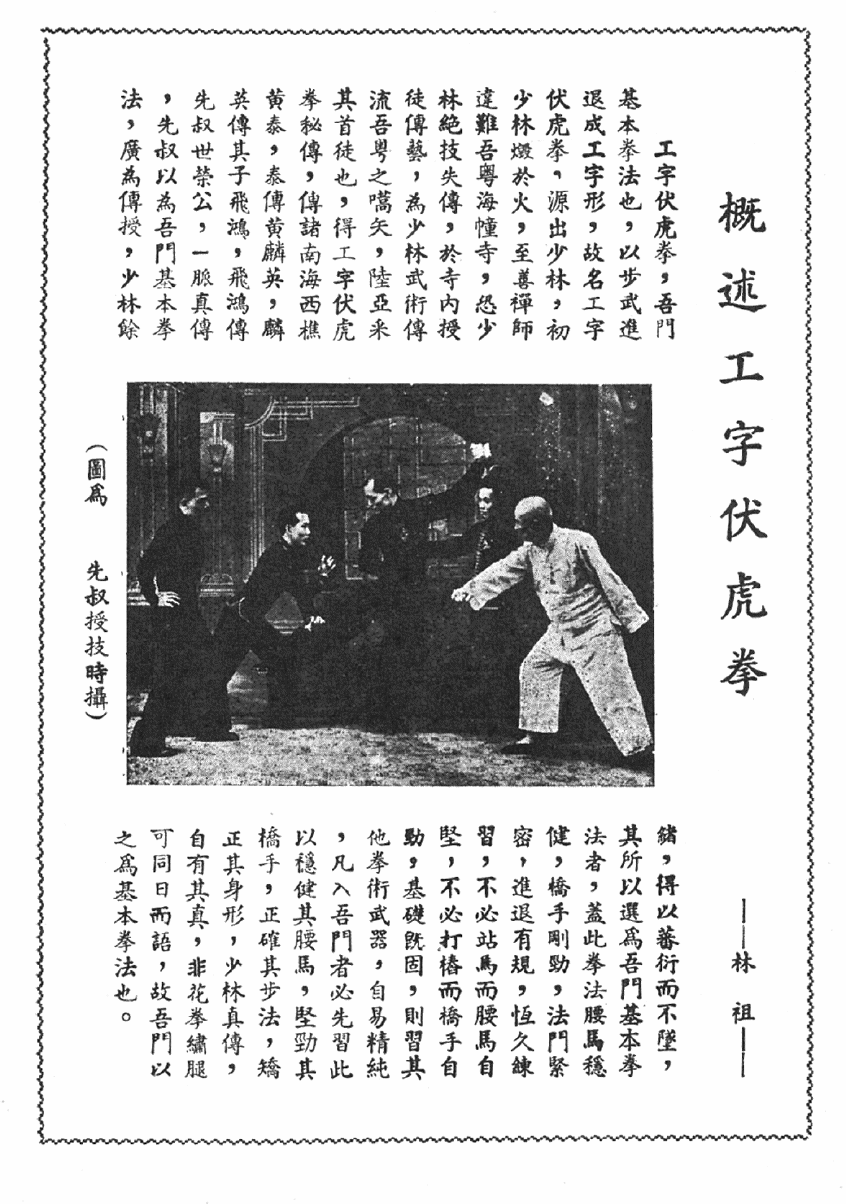 概述工字伏虎拳
——林祖——
工字伏虎拳，吾門
基本拳法也，以步武進
退成工字形，故名工字
伏虎拳。源出少林，初
少林燬於火，至善禪師
違難吾粵海幢寺，恐少
林絕技失傳，於寺內授
徒傳藝，為少林武術傳
流吾粵之嚆矢，陸亞采
其首徒也，得工字伏虎
拳秘傳，傳諸南海西樵
黃泰，泰傳黃麟英，麟
英傳其子飛鴻，飛鴻傳
先叔世榮公，一脈真傳
，先叔以為吾門基本拳
法，廣為傳授，少林餘
緒，得以蕃衍而不墜，
其所以選爲吾門基本拳
法者，蓋此拳法腰馬穩
健，橋手剛勁，法門緊
密，進退有規，恆久練
習，不必站馬而腰馬自
堅，不必打樁而橋手自
勁，基礎既固，則習其
他拳術武器，自易精純
，凡入吾門者必先習此
以穩健其腰馬，堅勁其
橋手，正確其步法，矯
正其身形，少林真傳，
自有其真，非花拳繡腿
可同日而語，故吾門以
之爲基本拳法也。
（圖爲　先叔授技時攝）